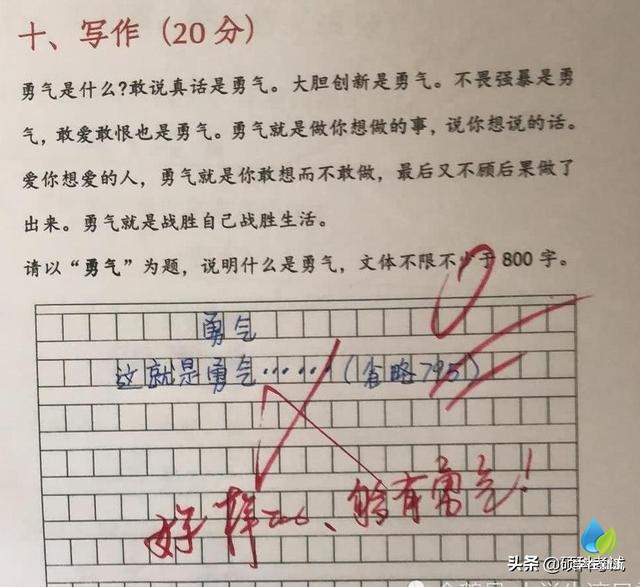 十、写作（20 分）
勇气是什么?敢说真话是勇气。大胆创新是勇气。不畏强暴是勇
气，敢爱敢恨也是勇气。勇气就是做你想做的事，说你想说的话。
爱你想爱的人，勇气就是你敢想而不敢做，最后又不顾后果做了
出来。勇气就是战胜自己战胜生活。
请以“勇气”为题，说明什么是勇气，文体不限不少于 800 字。
0
勇气
这就是勇气……（省略795）
好样的、能有勇气！
头条 @